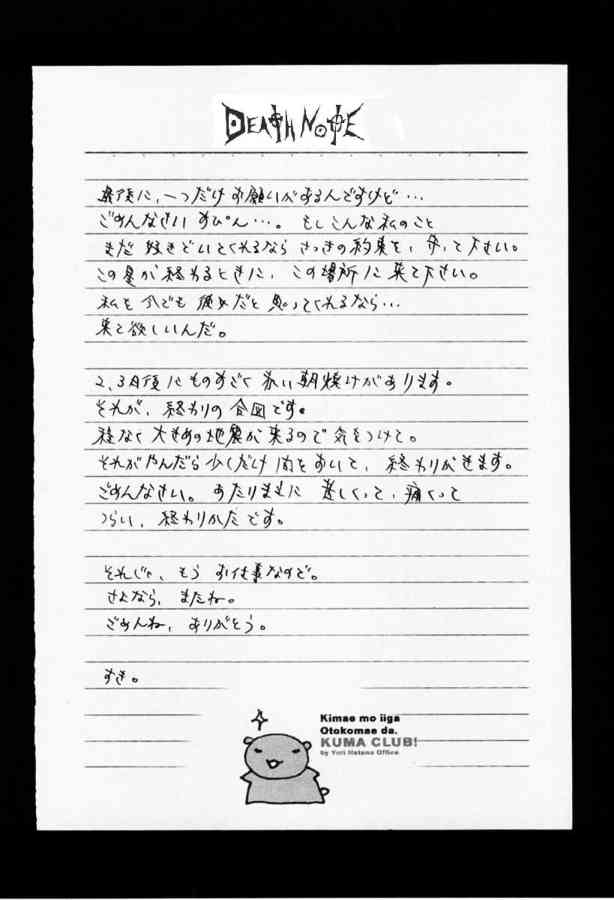 DEATH NOTE
最後に、一つだけお願いがあるんですけど…
ごめんなさい あぴん…。もしこんな私のこと
まだ 好きでいてくれるなら さっきの約束を、守って下さい。
この星が終わるときに、この場所に来て下さい。
私を 少しでも 彼女だと 思ってくれるなら…
来て欲しいんだ。
2、3ヵ月後に ものすごく 赤い 朝焼けがあります。
それが、終わりの合図です。
程なく 大きめの地震が来るので 気をつけて。
それがやんだら 少しだけ 間をおいて、終わりがきます。
ごめんなさい。あたりまえに 苦しくって、痛くって
つらい、終わりかたです。
それじゃ、もう お仕事なので。
さよなら、またね。
ごめんね、ありがとう。
すき。
Kimae mo iiga
Otokomae da.
KUMA CLUB!
by Yuri Hatano Office